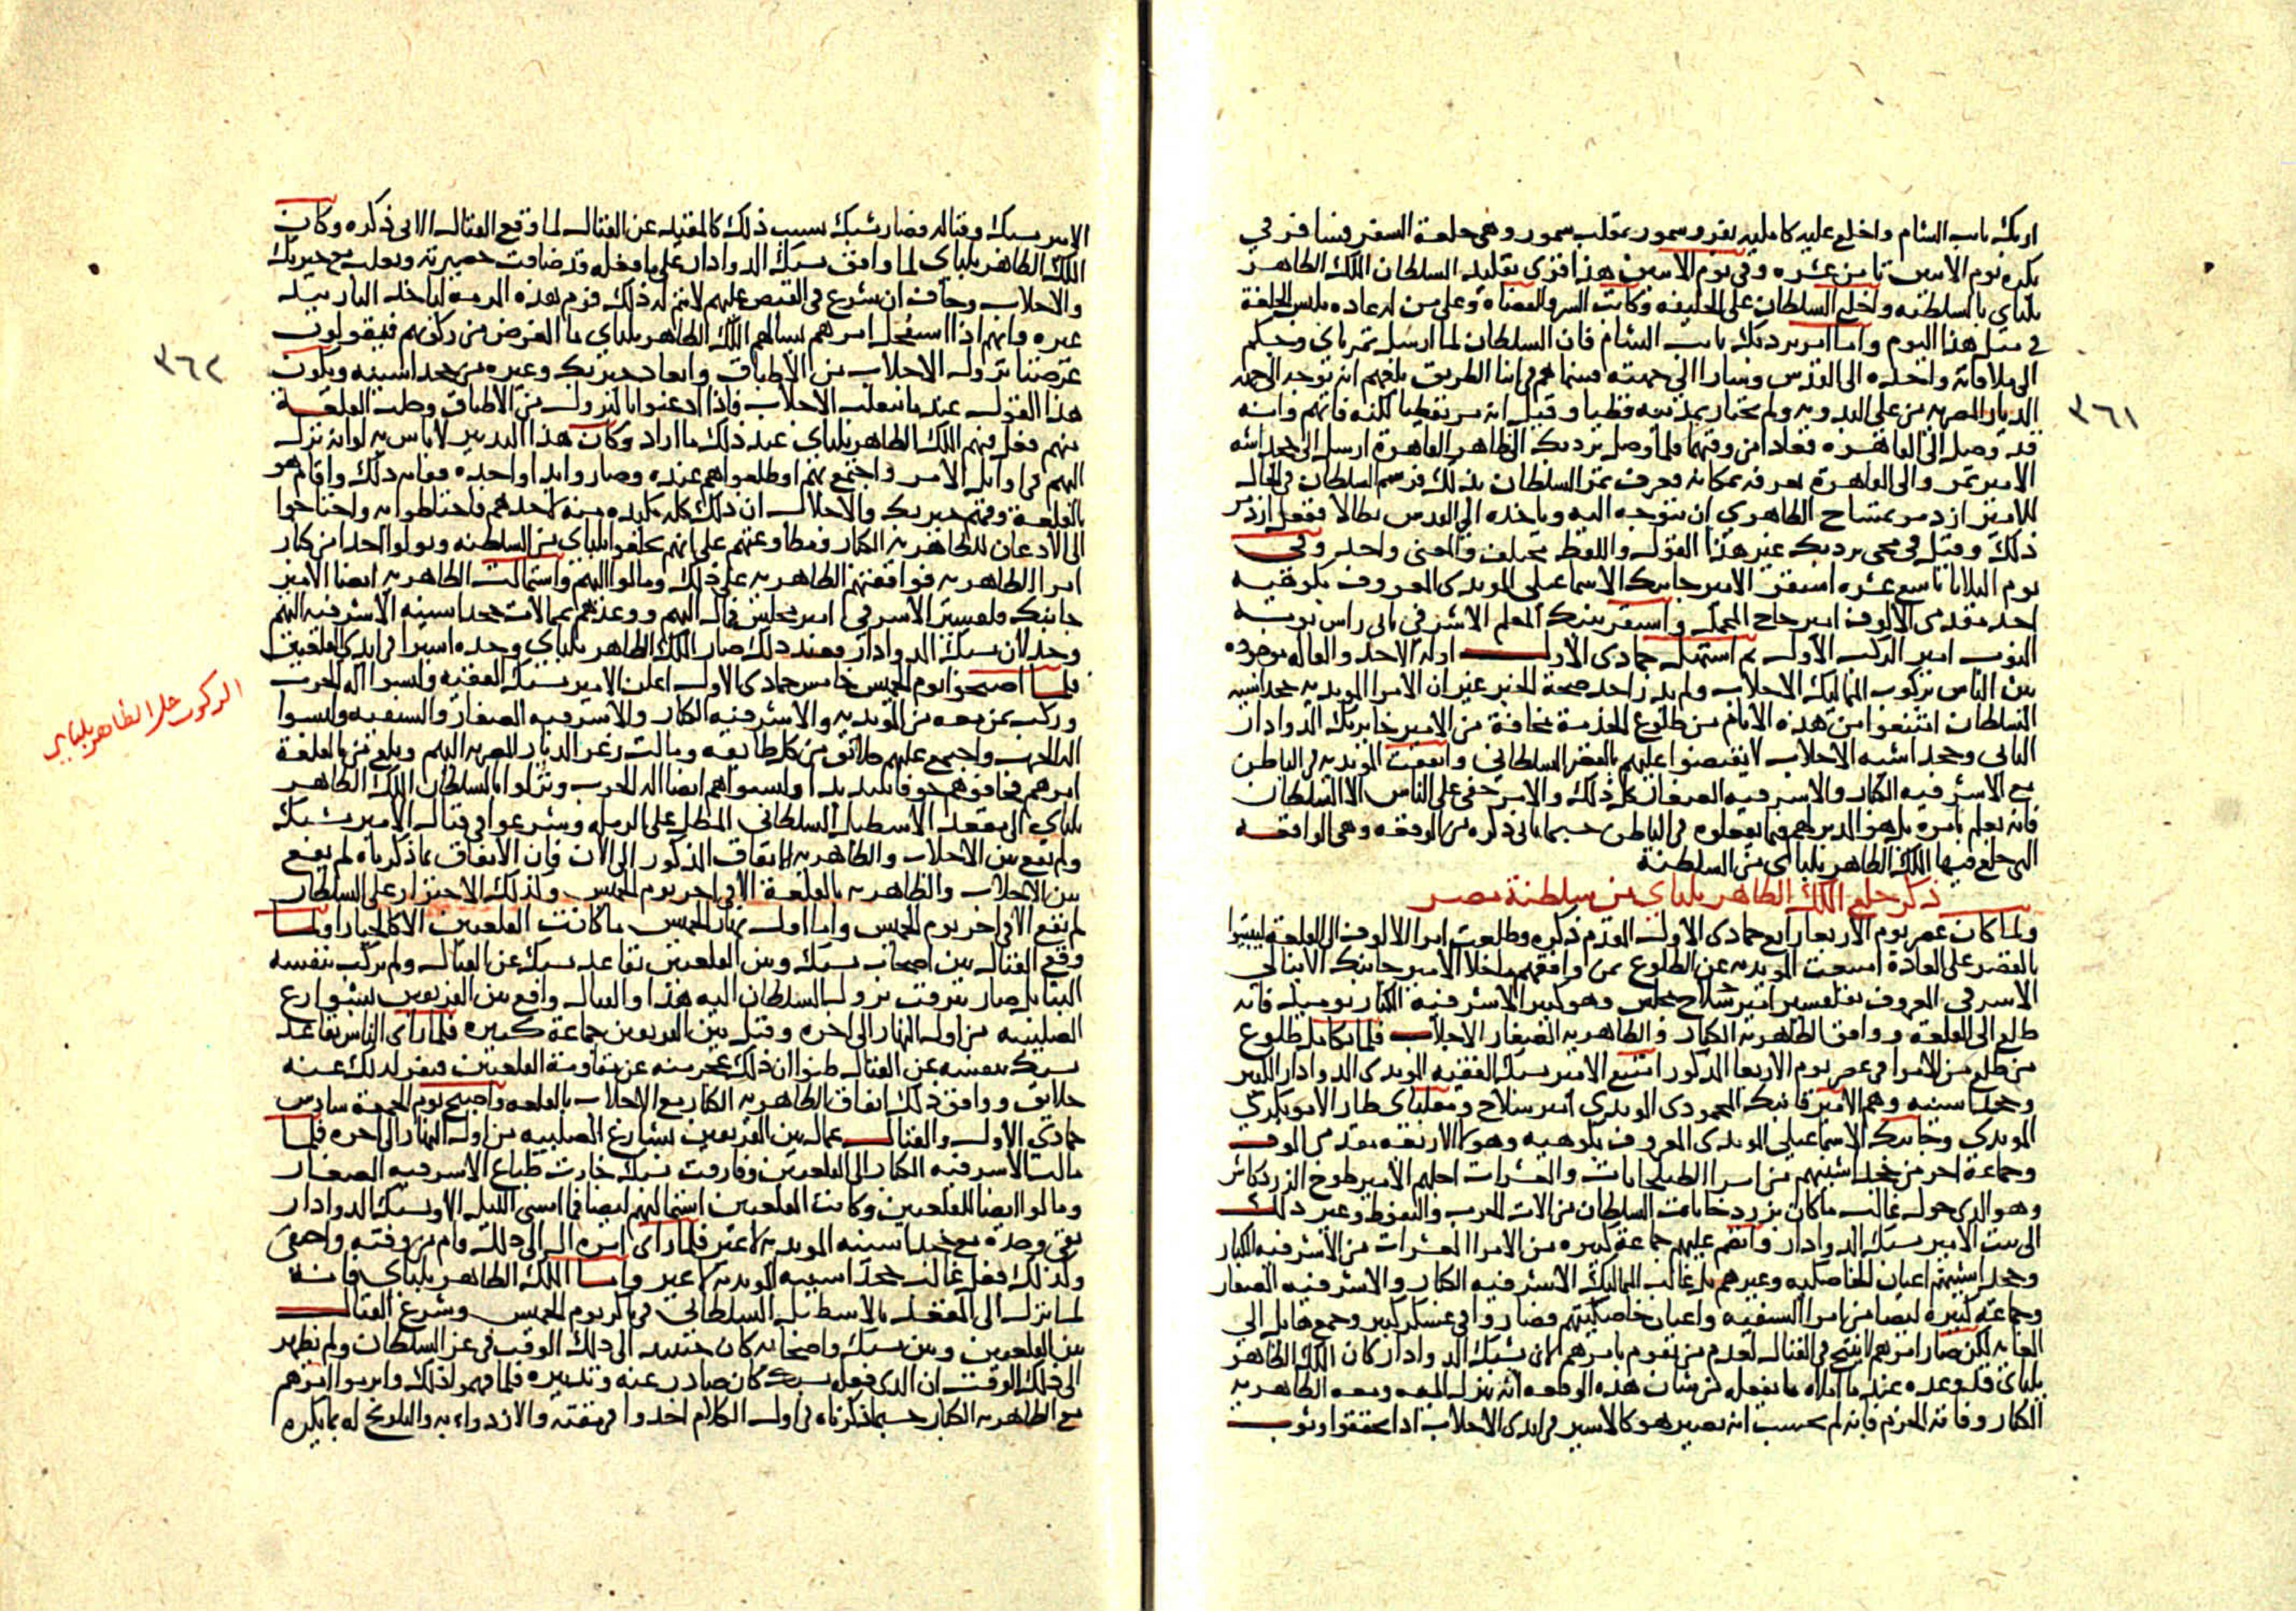 ازبك نايب الشام واخلع عليه كامليه بفرو سمور بمقلب سمور وهي خلعة السفر فسافر في
بكره يوم الاثنين ثامن عشره وفي يوم الاثنين هذا قري تقليد السلطان الملك الظاهر
يلباي بالسلطنه واخلع السلطان على الخليفه وكاتب السر والقضاه وعلى من له عاده بلبس الخلعة
في مثل هذا اليوم واما امر بردبك نايب الشام فان السلطان لما ارسل تمرباي وجكم
الى ملاقاته واخذه الى القدس وسارا الى جهته فبينما هم في اثنا الطريق بلغهم انه توجه الى جهة
الديار المصريه من على البدويه ولم يختار بمدينه قطيا وقيل انه مر بقطيا لكنه فاتهم وانه
قد وصل الى القاهره فعادا من وقتهما فلما وصل بردبك الى ظاهر القاهرة ارسل الى خجداشه
الامير تمر والى القاهرة يعرفه بمكانه فعرف تمر السلطان بذلك فرسم السلطان في الحال
للامير ازدمر تمساح الظاهري ان يتوجه اليه وياخذه الى القدس بطالا ففعل ازدمر
ذلك وقيل في مجى بردبك غير هذا القول واللفظ مختلف والمعنى واحد وفي
يوم الثلاثا تاسع عشره استقر الامير جانبك الاسماعيلي المويدي المعروف بكوهيه
احد مقدمي الالوف امير حاج المحمل واستقر تنبك المعلم الاشرفي ثاني راس نوبة
النوب امير الركب الاول ثم استهل جمادى الاولى اوله الاحد والقاله موجوده
بين الناس بركوب المماليك الاجلاب ولم يدر احد صحة الخبر غير ان الامرا المويديه خجداشيه
السلطان امتنعوا من هذه الايام من طلوع الخدمة مخافة من الامير خايربك الدوادار
الثاني وخجداشيه الاجلاب لا يقبضوا عليهم بالقصر السلطاني واتفقت المويديه في الباطن
مع الاشرفيه الكبار والاشرفيه الصغار كل ذلك والامر خفي على الناس الا السلطان
فانه يعلم بامره بل هو المدبر لهم فيما يفعلوه في الباطن حسبما ياتي ذكره من الوقعه وهي الواقعه
التي خلع فيها الملك الظاهر يلباي من السلطنة
ذكر خلع الملك الظاهر يلباي من سلطنة مصر
ولما كان عصر يوم الاربعا رابع جمادى الاولى المقدم ذكره وطلعت امرا الالوف الى القلعة ليبيتوا
بالقصر على العادة امتنعت المويديه عن الطلوع بمن وافقهم ما خلا الامير جانبك الاينالي
الاشرفي المعروف بقلقسيز امير سلاح مجلس وهو كبير الاشرفيه الكبار يوميذ فانه
طلع الى القلعة ووافق الظاهريه الكبار والظاهريه الصغار الاجلاب فلما تكامل طلوع
من طلع من الامرا في عصر يوم الاربعا المذكور امتنع الامير يشبك الفقيه المويدي الدوادار الكبير
وخجداشيته وهم الامير قانبك المحمودي المويدي امير سلاح ومغلباي طاز الابوبكري
المويدي وجانبك الاسماعيلي المويدي المعروف بكوهيه وهولا الاربعه مقدمي الوف
وجماعة اخر من خجداشيتهم من امرا الطبلخانات والعشرات اجلهم الامير طوخ الزردكاش
وهو الذي حول غالب ما كان بزردخاناة السلطان من الات الحرب والنفوط وغير ذلك
الى بيت الامير يشبك الدوادار وانضم عليهم جماعة كبيره من الامرا العشرات من الاشرفيه الكبار
وخجداشيتهم اعيان الخاصكيه وغيرهم بل غالب المماليك الاشرفيه الكبار والاشرفيه الصغار
وجماعة كبيره ايضا من امرا السيفيه واعيان خاصكيتهم فصاروا في عسكر كبير وجمع هايل الى
الغايه لكن صار امرهم لا ينتج في القتال لعدم من يقوم بامرهم لان يشبك الدوادار كان الملك الظاهر
يلباي قد وعده عندما املاه ما يفعله من شان هذه الوقعه انه ينزل اليه ومعه الظاهريه
الكبار وفاته الحزم فانه لم يحسب انه يصير هو كالاسير في ايدي الاجلاب اذا تحققوا وثوب
٣٦١
الامير يشبك وقتاله فصار يشبك بسبب ذلك كالمقيد عن القتال لما وقع القتال الاتي ذكره وكان
الملك الظاهر يلباي لما وافق يشبك الدوادار على ما فعله قد ضاقت حصيرته وتغلب مع خيربك
والاجلاب وخاف ان شرع في القبض عليهم لا يتم له ذلك فرتم هذه المرمة لياخذ الثار بيد
غيره وانهم اذا استفحل امرهم يسالهم الملك الظاهر يلباي ما الغرض من ركوبهم فيقولون
غرضنا نزول الاجلاب من الاطباق وابعاد خيربك وغيره من خجداشيته ويكون
هذا القول عندما تتغلب الاجلاب فاذا اذعنوا بالنزول من الاطباق وخلت القلعة
منهم فعل فيهم الملك الظاهر يلباي عند ذلك ما اراد وكان هذا التدبير لا باس به لو انه نزل
اليهم في اوايل الامر واجتمع بهم او طلعوا هم عنده وصاروا يدا واحده ففاته ذلك واقام هو
بالقلعة وفهم خيربك والاجلاب ان ذلك كله مكيده منه لاخذهم فاحتاطوا به واحتاجوا
الى الاذعان للظاهريه الكبار ومطاوعتهم على انهم يخلعوا يلباي من السلطنه ويولوا احدا من كبار
امرا الظاهريه فوافقتهم الظاهريه على ذلك ومالوا اليهم واستمالت الظاهريه ايضا الامير
جانبك قلقسيز الاشرفي امير مجلس فمال اليهم ووعدهم بممالات خجداشيته الاشرفيه اليهم
وخذلان يشبك الدوادار فعند ذلك صار الملك الظاهر يلباي وحده اسيرا في ايدي القلعيين
فلما اصبحوا يوم الخميس خامس جمادى الاولى اعلن الامير يشبك الفقيه ولبسوا اله الحرب
وركب بمن معه من المويديه والاشرفيه الكبار والاشرفيه الصغار والسيفيه ولبسوا
اله الحرب واجتمع عليهم خلايق من كل طايفه ومالت زعر الديار المصريه اليهم وبلغ من بالقلعة
امرهم فخافوهم خوفا شديدا ولبسوا هم ايضا اله الحرب ونزلوا بالسلطان الملك الظاهر
يلباي الى مقعد الاسطبل السلطاني المطل على الرميله وشرعوا في قتال الامير يشبك
ولم يقع بين الاجلاب والظاهريه الاتفاق المذكور الى الان فان الاتفاق بما ذكرناه لم يقع
بين الاجلاب والظاهريه بالقلعة الا في اخر يوم الخميس وكذلك الاحتراز على السلطان
لم يقع الا في اخر يوم الخميس واما اول نهار الخميس ما كانت القلعيين الا كالحيارا ولما
وقع القتال بين اصحاب يشبك وبين القلعيين تقاعد يشبك عن القتال ولم يركب بنفسه
البتا بل صار يترقب نزول السلطان اليه هذا والقتال واقع بين الفريقين بشوارع
الصليبيه من اول النهار الى اخره وقتل بين الفريقين جماعة كبيره فلما راى الناس تقاعد
يشبك بنفسه عن القتال ظنوا ان ذلك عجز منه عن مقاومة القلعيين فنفر لذلك عنه
خلايق ووافق ذلك اتفاق الظاهريه الكبار مع الاجلاب بالقلعه واصبح يوم الجمعة سادس
جمادى الاولى والقتال عمال بين الفريقين بشارع الصليبيه من اول النهار الى اخره فلما
مالت الاشرفيه الكبار الى القلعيين وفارقت يشبك خارت طباع الاشرفيه الصغار
ومالوا ايضا للقلعيين وكانت القلعيين استمالتهم ايضا فما امسى الليل الا ويشبك الدوادار
بقي وحده مع خجداشيته المويديه لا غير فلما راى امره ال الى ذلك قام من وقته واختفى
وكذلك فعل غالب خجداشيته المويديه لا غير واما الملك الظاهر يلباي فانه
لما نزل الى المقعد بالاسطبل السلطاني في باكر يوم الخميس وشرع القتال
بين القلعيين وبين يشبك واصحابه كان حينيد الى ذلك الوقت في عز السلطان ولم يظهر
الى ذلك الوقت ان الذي فعله يشبك كان صادر عنه وتدبيره فلما فهموا ذلك وابرموا امرهم
مع الظاهريه الكبار حسبما ذكرناه في اول الكلام اخذوا في مقته والازدراء به والتلويح له بما يكره
٣٦٢
الركوب على الظاهر يلباي